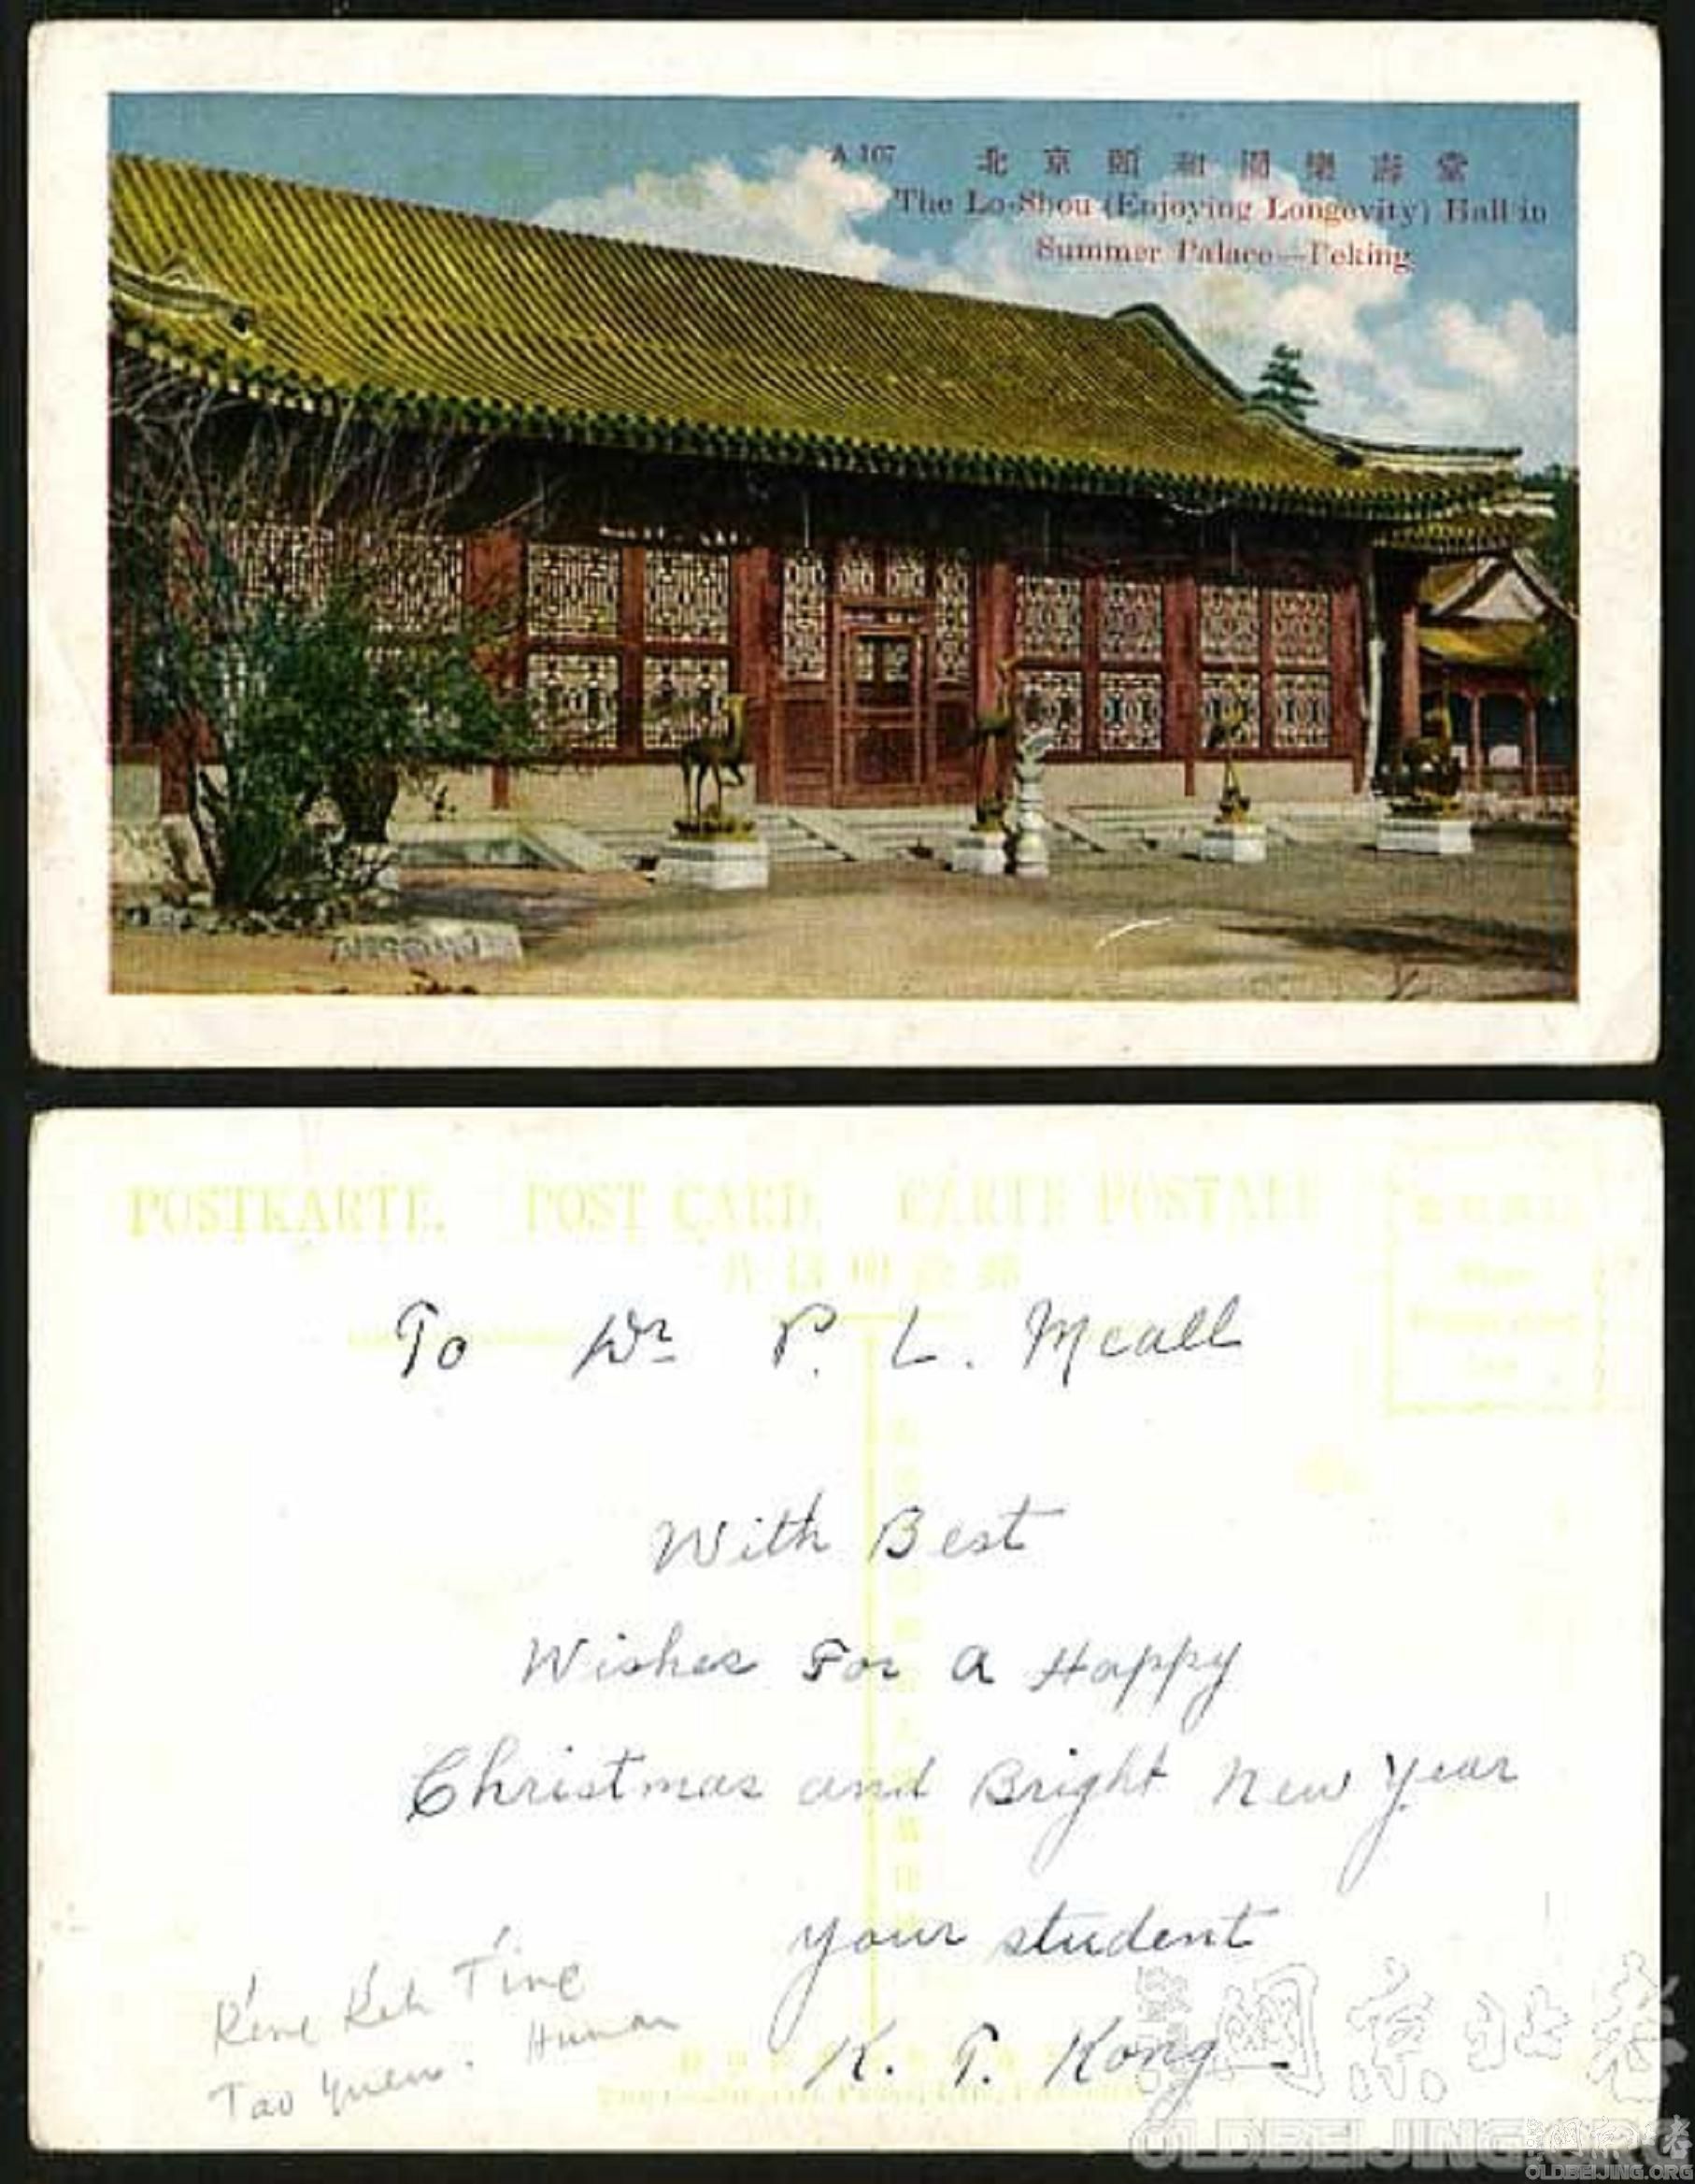 A 107 北京頤和園樂壽堂
The Lo-Shou (Enjoying Longevity) Hall in
Summer Palace—Peking
POSTKARTE. POST CARD. CARTE POSTALE
To Dr P. L. Mcall
With Best
Wishes For A Happy
Christmas and Bright New Year
your student
K. T. Kong
K'ung Keh T'ing
Tao Yuen. Hunan
老北京網
OLDBEIJING.ORG
OLDBEIJING.ORG